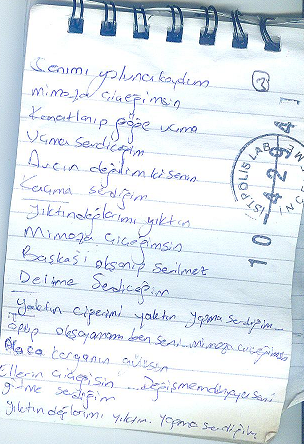 Canımı yoluna koydum
2
mimoza çiçeğimsin
Kanatlanıp göğe uçma
Uçma sevdiceğim
Avcın değilim ki senin
Kaçma sevdiğim
Yıktın dağlarımı yıktın
Mimoza çiçeğimsin
Başkası okşanıp sevilmez
Deme Sevdiceğim
yaktın ciğerimi yaktın yapma sevdiğim...
Öpüp okşayamam ben seni... mimoza çiçeğimsin
Ellerin çiçeğisin... Değişmem dünyayı seni
gitme sevdiğim
yıktın dağlarımı yıktın. yapma sevdiğim
ISTPOLIS LAB
10421